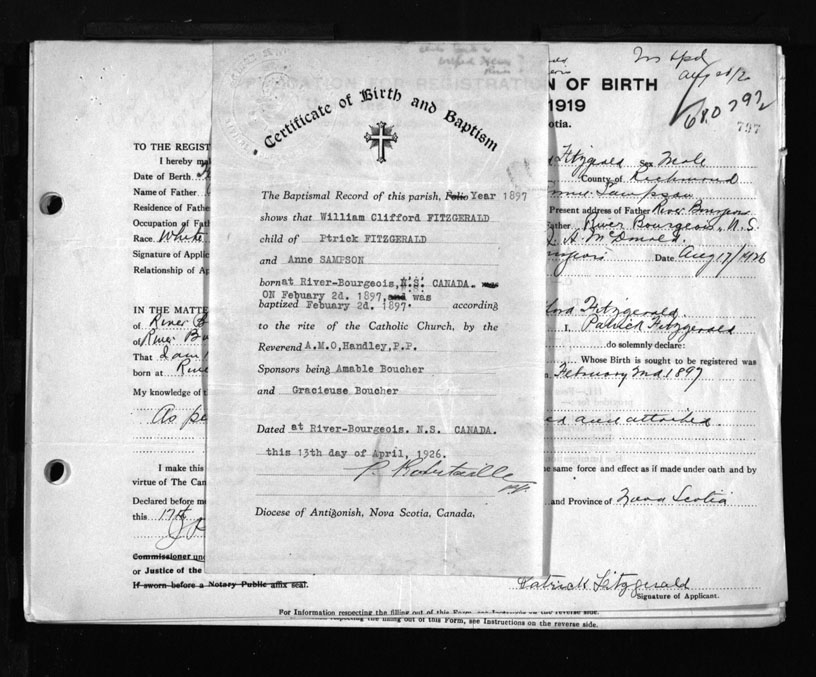 Certificate of Birth and Baptism
The Baptismal Record of this parish, Folio Year 1897
shows that William Clifford FITZGERALD
child of Ptrick FITZGERALD
and Anne SAMPSON
born at River-Bourgeois, N.S. CANADA. was
ON Febuary 2d. 1897, and was
baptized Febuary 2d. 1897. according
to the rite of the Catholic Church, by the
Reverend A.M.O, Handley, P.P.
Sponsors being Amable Boucher
and Gracieuse Boucher
Dated at River-Bourgeois. N.S. CANADA.
this 13th day of April, 1926.
P.P.
Diocese of Antigonish, Nova Scotia, Canada.
N OF BIRTH
1919
otia.
680792
797
TO THE REGIST
I hereby ma
Date of Birth
Name of Father
Residence of Fathe
Occupation of Fath
Race. White
Signature of Applic
Relationship of Ap
IN THE MATTE
of River B
of River Bo
That I am
born at River
My knowledge of t
As pe
I make this
virtue of The Can
Declared before me
this 17th
Commissioner und
or Justice of the
If sworn before a Notary Public affix seal.
Fitzgerald Sex Male
County of Richmond
Sampson
Present address of Father River Bourgeois
ather River Bourgeois, N.S.
A. McDonald.
Date Aug 17/1926
ford Fitzgerald.
I, Patrick Fitzgerald
do solemnly declare:
Whose Birth is sought to be registered was
February 2nd 1897
attached.
e same force and effect as if made under oath and by
and Province of Nova Scotia
Patrick Fitzgerald
Signature of Applicant.
For Information respecting the filling out of this Form, see Instructions on the reverse side.
respecting the filling out of this Form, see Instructions on the reverse side.